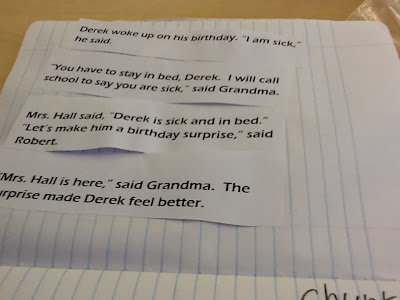 Derek woke up on his birthday. "I am sick,"
he said.
"You have to stay in bed, Derek. I will call
school to say you are sick," said Grandma.
Mrs. Hall said, "Derek is sick and in bed."
"Let's make him a birthday surprise," said
Robert.
"Mrs. Hall is here," said Grandma. The
urprise made Derek feel better.